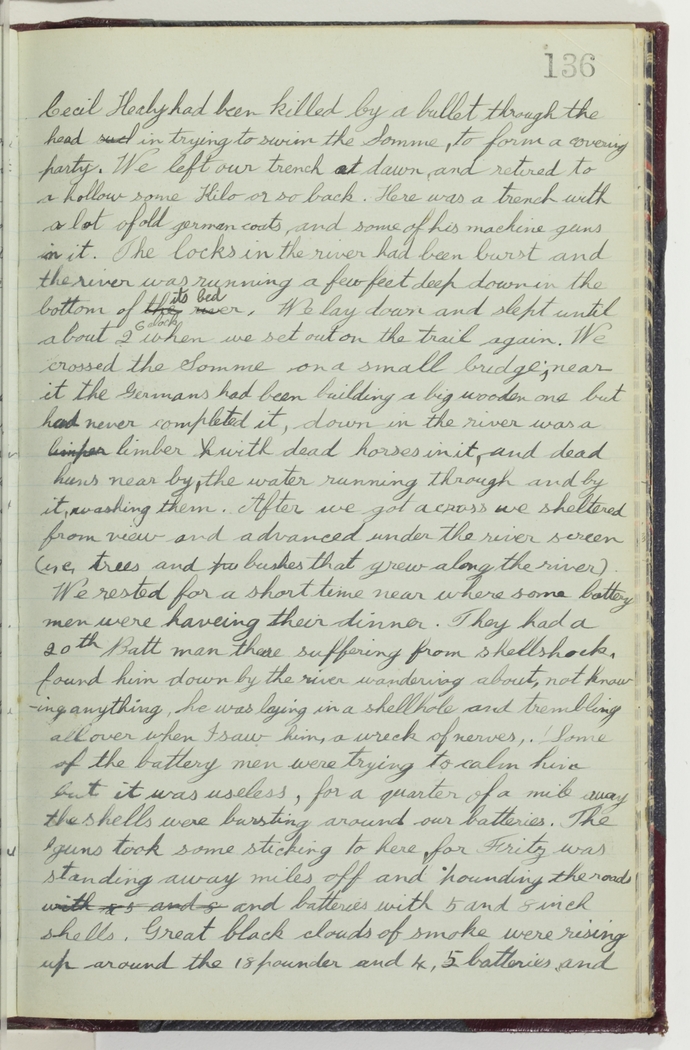 136
Cecil Healy had been killed by a bullet through the
head in trying to swim the Somme, to form a covering
party. We left our trench at dawn, and retired to
a hollow some Kilo or so back. Here was a trench with
a lot of old german coats, and some of his machine guns
in it. The locks in the river had been burst and
the river was running a few feet deep down in the
its bed
bottom of the river. We lay down and slept until
6 oclock
about 2 when we set out on the trail again. We
crossed the Somme on a small bridge; near
it the Germans had been building a big wooden one but
had never completed it, down in the river was a
limper limber with dead horses in it, and dead
huns near by, the water running through and by
it, washing them. After we got across we sheltered
from view and advanced under the river screen
(i.e, trees and bushes that grew along the river).
We rested for a short time near where some battery
men were haveing their dinner. They had a
20th Batt man there suffering from shellshock,
found him down by the river wandering about, not know
-ing anything, he was laying in a shellhole and trembling
all over when I saw him, a wreck of nerves,. ! Some
of the battery men were trying to calm him
but it was useless, for a quarter of a mile away
the shells were bursting around our batteries. The
guns took some sticking to here, for Fritz was
standing away miles off and 'pounding the roads
with 5 and 8 and batteries with 5 and 8 inch
shells. Great black clouds of smoke were rising
up around the 18 pounder and 4,5 batteries, and